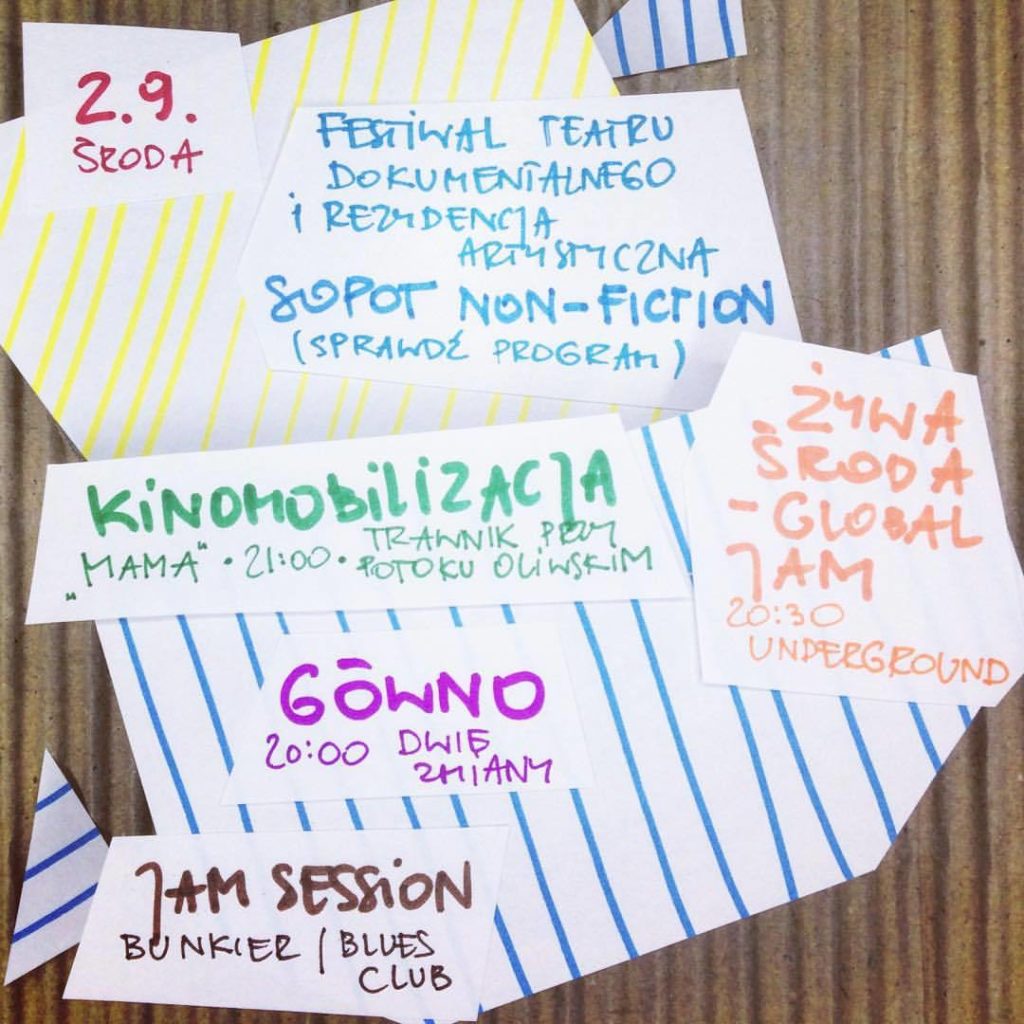 2.9.
ŚRODA
FESTIWAL TEATRU
DOKUMENTALNEGO
i REZYDENCJA
ARTYSTYCZNA
SOPOT NON-FICTION
(SPRAWDŹ PROGRAM)
KINOMOBILIZACJA
„MAMA” · 21:00 · TRAWNIK PRZY
POTOKU OLIWSKIM
ŻYWA
ŚRODA
- GLOBAL
JAM
20:30
UNDERGROUND
GÓWNO
20:00 DWIE
ZMIANY
JAM SESSION
BUNKIER / BLUES
CLUB